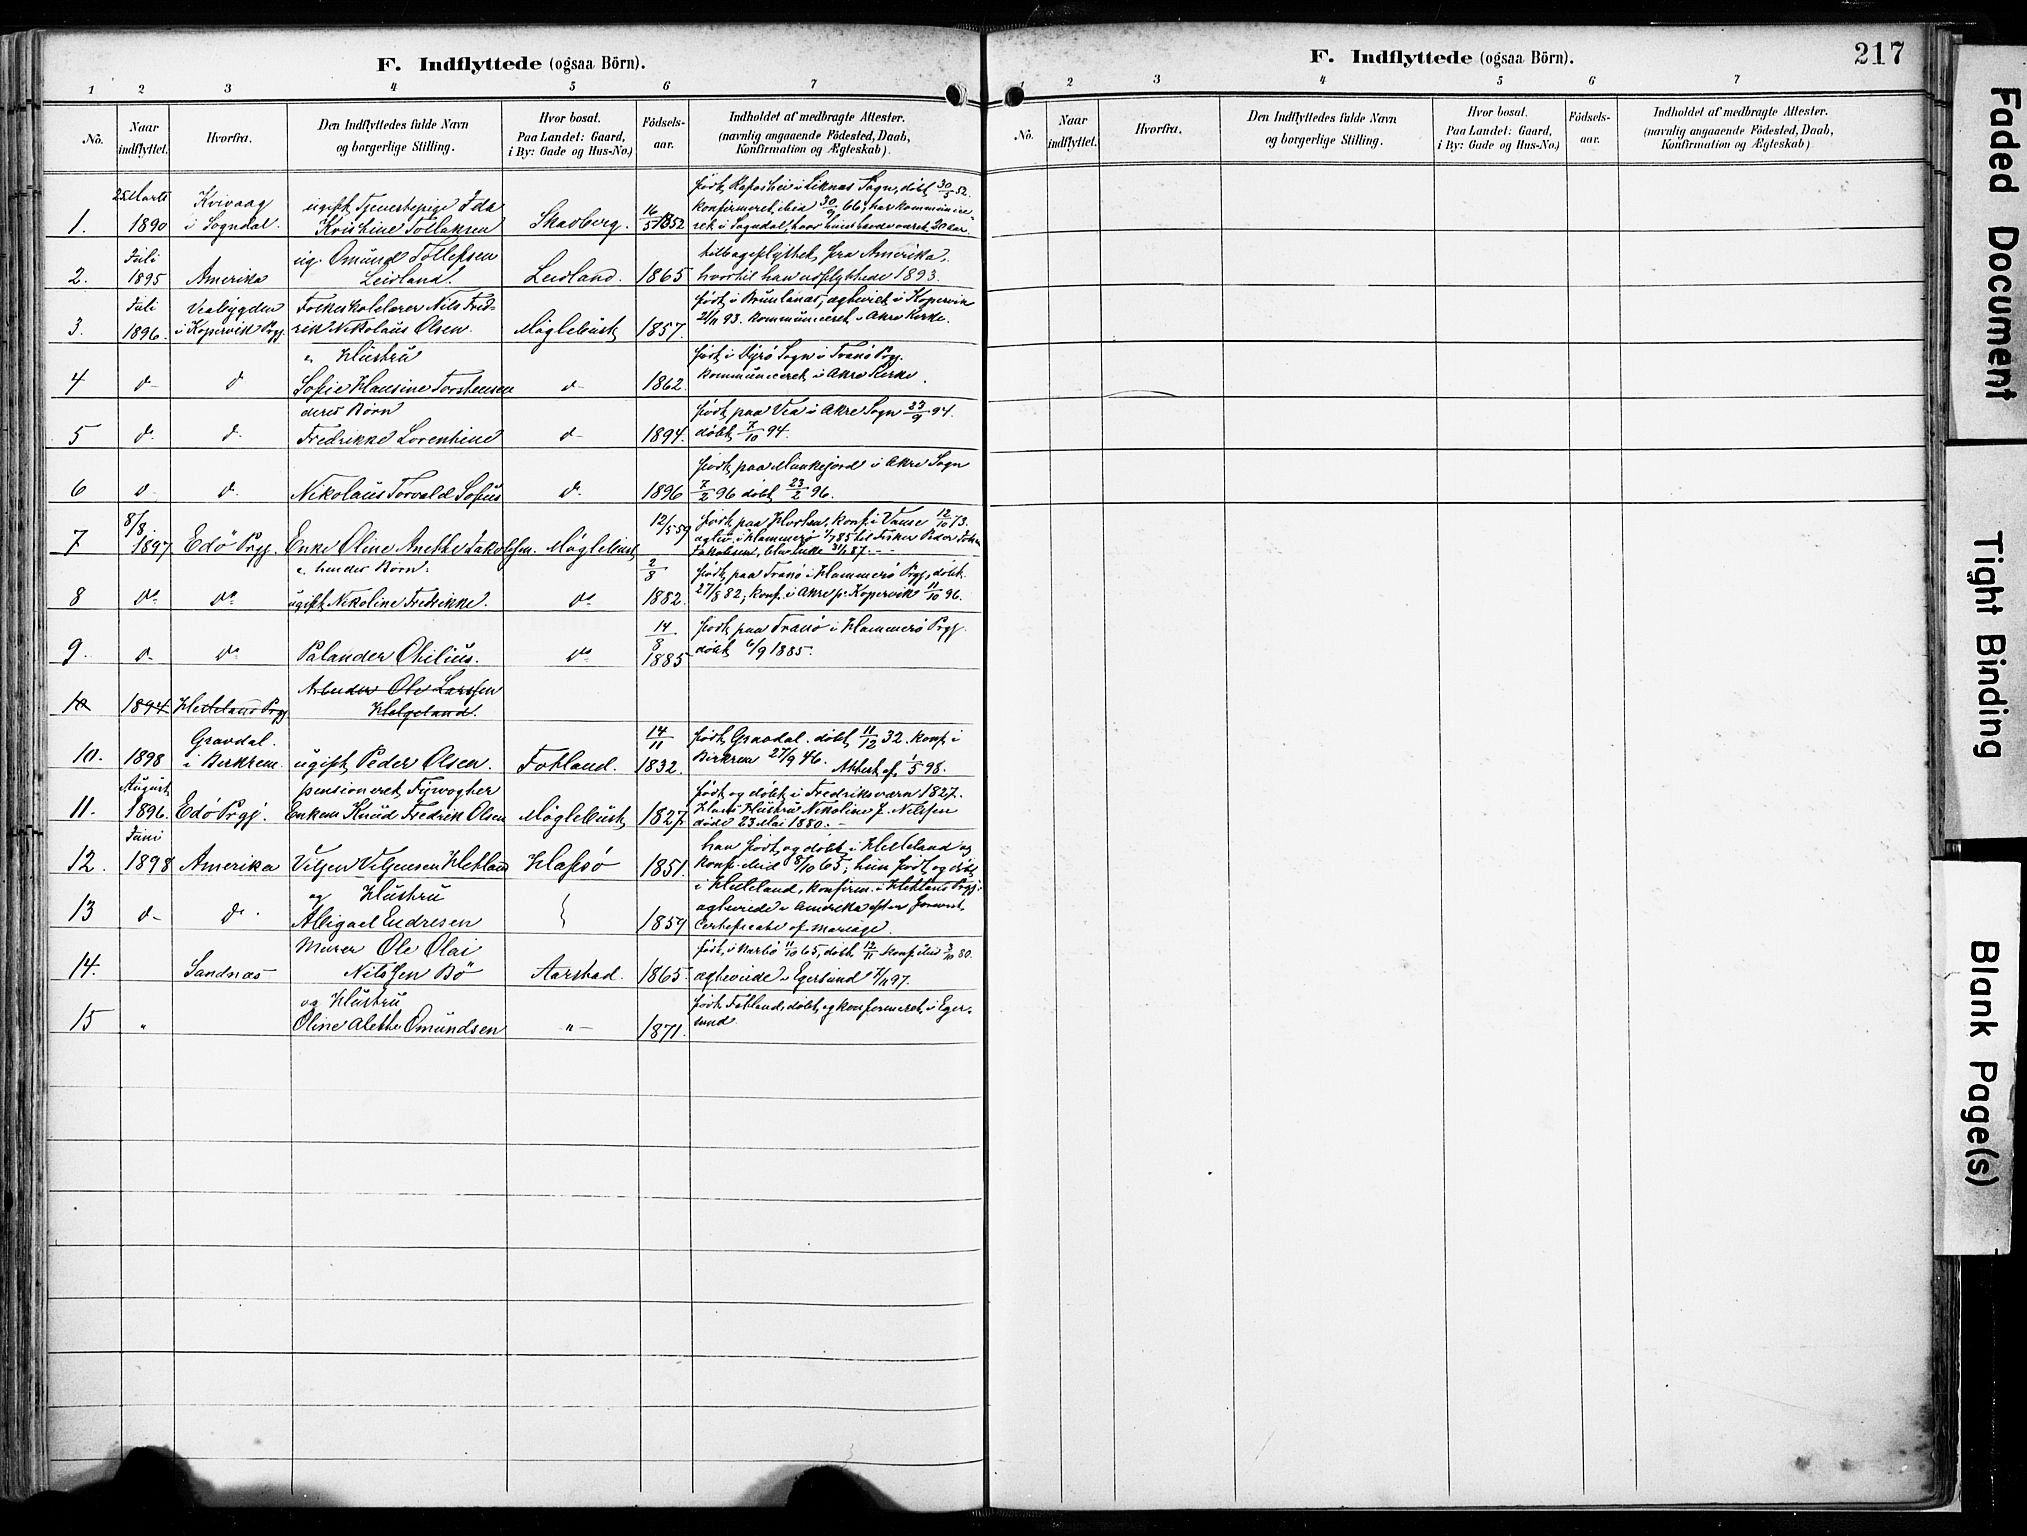 F. Indflyttede (ogsaa Börn).
1 2 3 4 5 6 7
No.
Naar indflyttet.
Hvorfra.
Den Indflyttedes fulde Navn
og borgerlige Stilling.
Hvor bosat.
Paa Landet: Gaard,
i By: Gade og Hus-No.)
Födsels-
aar.
Indholdet af medbragte Attester.
(navnlig angaaende Födested, Daab,
Konfirmation og Ægteskab).
25 Marts Kvivaag ugift Tjenestepige Ida
1. 1890 i Sogndal. Kristine Tollaksen Skadberg. 16/5 1852
født i Liknes Sogn, døbt 30/5 52.
konfirmeret ibid 30/9 66; har kommunice-
ret i Sogndal, hvor hun havde været 20 aar.
Juli ug. Omund Tollefsen
2. 1895 Amerika Leidland. Leidland. 1865
tilbageflyttet fra Amerika,
hvortil han udflyttede 1893.
Juli Veabygden Folkeskolelærer Nils Fred-
3. 1896. i Kopervik Prgj. rik Nikolaus Olsen. Møglebust 1857.
født i Brunlanæs, ægteviet i Kopervik
21/11 93. kommuniceret i Akre Kirke.
" Hustru
4 d- d Sofie Hansine Torstensen d- 1862.
født i Dyrø Sogn i Tranø Prgj.
kommuniceret i Akre Kirke.
deres Børn
5 d. d. Fredrikke Lorentine d- 1894.
født paa Vea i Akre Sogn 23/9 94.
døbt 7/10 94.
6 d- d. Nikolaus Torvald Sofus d. 1896
født paa Munkejord i Akre Sogn
7/2 96 døbt 23/2 96.
7 8/8 1897 Edø Prgj. Enke Oline Anethe Jakobsen. Møglebust 12/5 59
født paa Horten, konf. i Vanse 12/10 73.
ægtev. i Hammerø 1/7 85 til Fisker Peder Johan
Jakobsen, blev Enke 31/1 87. -
" hendes Børn.
8 do do ugift Nikoline Fredrikke. do 2/8 1882.
født paa Tranø i Hammerø Prgj, døbt
27/8 82; konf. i Akre pr Kopervik 11/10 96.
9. d- do Palander Othilius. do 14/8 1885
født paa Tranø i Hammerø Prgj.
døbt 6/9 1885.
10 1894 Helleland Prgj. Arbeider Ole Larssen
Helgeland.
Gravdal.
10. 1898 i Birkrem. ugift Peder Olsen. Fotland. 14/11 1832.
født Gravdal. døbt 11/12 32. konf. i
Birkrem 27/9 46. Attest af 1/5 98.
August pensioneret Fyrvogter
11. 1896. Edø Prgj. Enkem. Knud Fredrik Olsen Møglebust 1827
født og døbt i Fredriksværn 1827.
Hans Hustru Nikoline J. Nilssen
døde 23 Mai 1880. -
Juni
12. 1898 Amerika Vitjen Vitjensen Hetland Hafsø 1851.
han født og døbt i Helleland og
konf. ibid 8/10 65; hun født og døbt
i Helleland, konfirm. i Hetlands Prgj.
og Hustru
13 d- d. Abigael Endresen 1859
ægteviede i Amerika efter forevist
Certificate of mariage.
Murer Ole Olai
14. Sandnæs Nilssen Bø Aarstad. 1865
født i Nærbø 11/10 65, døbt 12/11 konf. ibid 3/10 80.
ægteviede i Egersund 7/11 97.
og Hustru
15 " Oline Alethe Omundsen "- 1871.
født Fotland, døbt og konfirmeret i Eger-
sund.
F. Indflyttede (ogsaa Börn).
217
1 2 3 4 5 6 7
No.
Naar
indflyttet.
Hvorfra.
Den Indflyttedes fulde Navn
og borgerlige Stilling.
Hvor bosat.
Paa Landet: Gaard,
i By: Gade og Hus-No.)
Födsels-
aar.
Indholdet af medbragte Attester.
(navnlig angaaende Födested, Daab,
Konfirmation og Ægteskab)
Faded Document
Tight Binding
Blank Page(s)